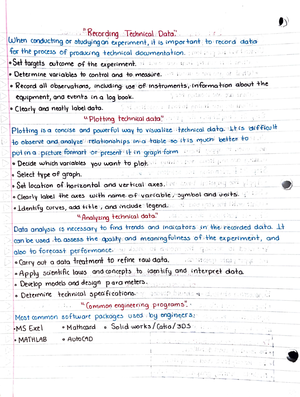 "Recording Technical Data"
When conducting or studying an experiment, it is important to record data
for the process of producing technical documentation.
• Set targets outcome of the experiment.
• Determine variables to control and to measure.
• Record all observations, including use of instruments, information about the
equipment, and events in a log book.
• Clearly and neatly label data.
"Plotting technical data"
Plotting is a concise and powerful way to visualize technical data. It is difficult
to observe and analyze relationships in a table so it is much better to
put in a picture format or present it in graph form.
• Decide which variables you want to plot.
• Select type of graph.
• Set location of horizontal and vertical axes.
• Clearly label the axes with name of variable, symbol and units.
• Identify curves, add title, and include legend.
"Analyzing technical data"
Data analysis is necessary to find trends and indicators in the recorded data. It
can be used to assess the quality and meaningfulness of the experiment, and
also to forecast performance.
• Carry out a data treatment to refine raw data.
• Apply scientific laws and concepts to identify and interpret data.
• Develop models and design parameters.
• Determine technical specifications.
"Common engineering programs"
Most common software packages used by engineers:
• MS Exel • Mathcard • Solid works/Catia/3DS
• MATHLAB • AutoCAD